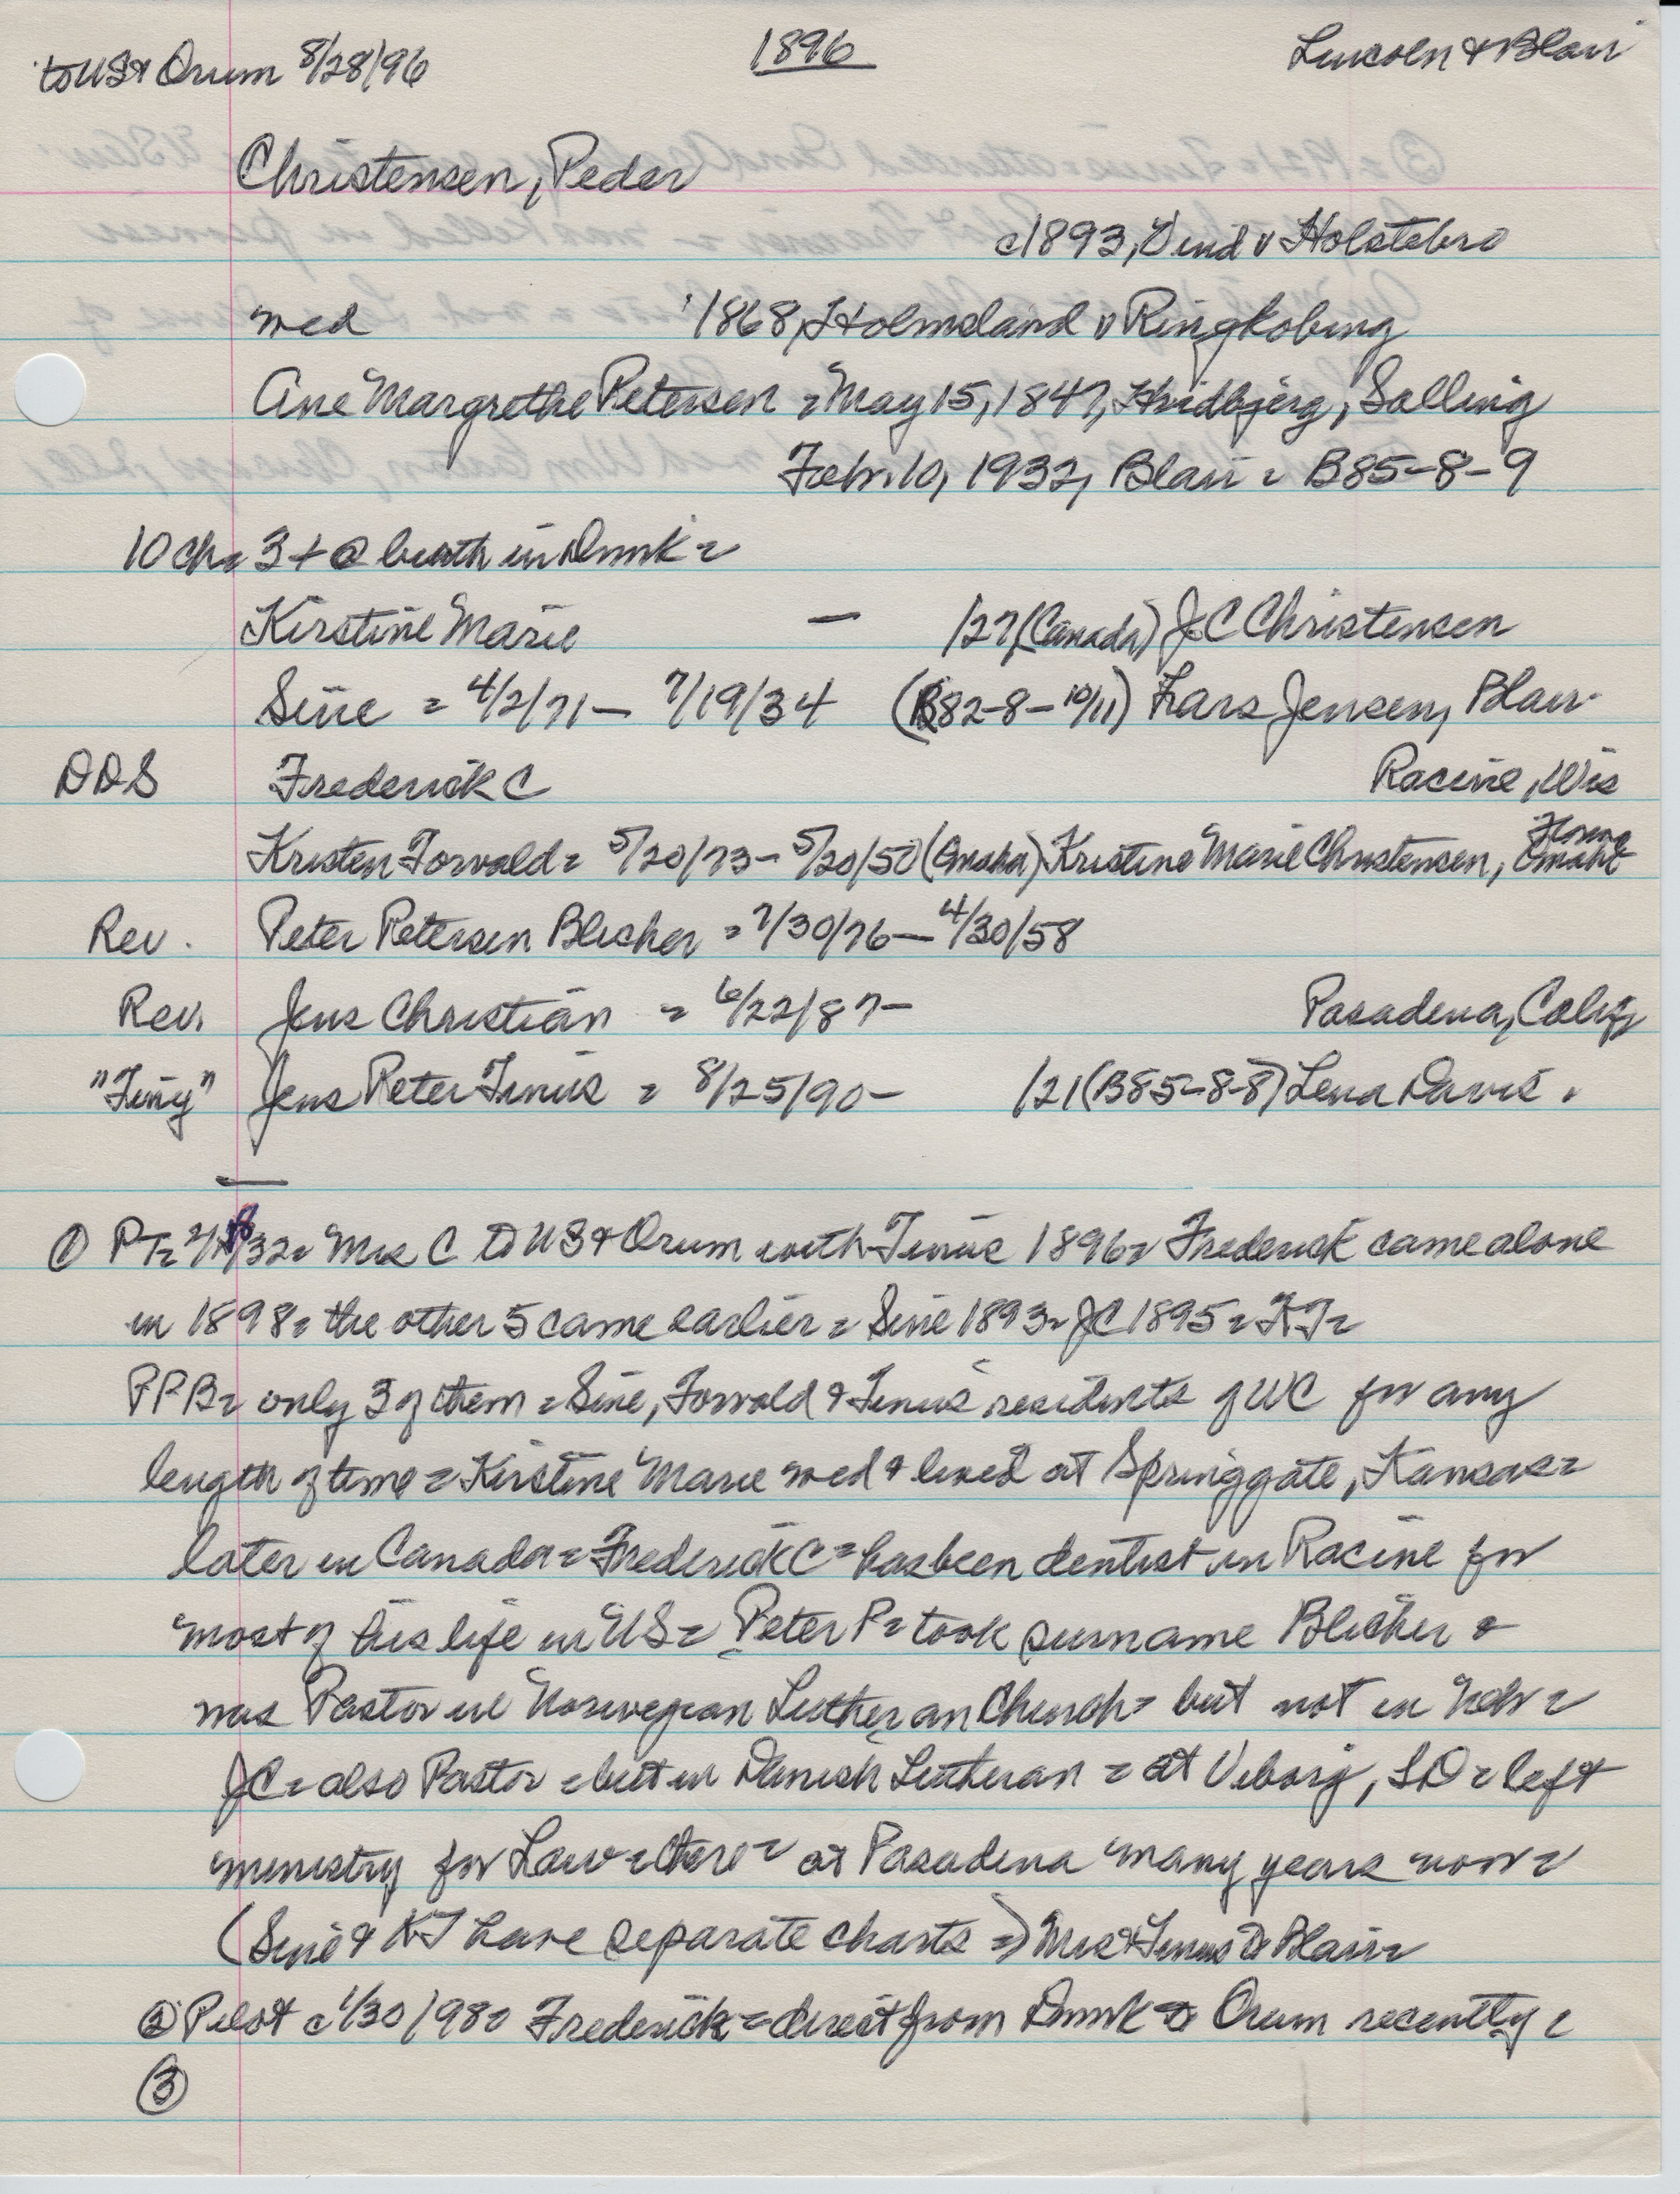 to US & Orum 8/28/96 1896 Lincoln & Blair
Christensen, Peder
c1893, Vind v Holstebro
med '1868, Holmsland v Ringkobing
Ane Margrethe Petersen = May 15, 1847, Hvidbjerg, Salling
Febr. 10, 1932, Blair = B85-8-9
10 ch = 3 + @ birth in Dnmk =
Kirstine Marie — /27 (Canada) J.C Christensen
Sine = 4/2/71 - 7/19/34 (B82-8-10/11) Lars Jensen, Blair
DDS Frederick C Racine, Wis
Kristen Torvald = 5/20/73 - 5/20/50 (Omaha) Kristine Marie Christensen, Omaha
Rev. Peter Petersen Blicher = 7/30/76 - 4/30/58
Rev. Jens Christian = 6/22/87 - Pasadena, Calif
"Tiny" Jens Peter Tinus = 8/25/90 - /21 (B85-8-8) Lena Davis.
① PT= 2/18/32= Mrs C to US & Orum with Tinus 1896= Frederick came alone
in 1898= the other 5 came earlier = Sine 1893= JC 1895= KT=
PPB= only 3 of them = Sine, Torvald & Tinus residents of WC for any
length of time = Kirstine Marie med & lived at Springgate, Kansas=
later in Canada = Frederick C = has been dentist in Racine for
most of his life in US= Peter P= took surname Blicher &
was Pastor in Norwegian Lutheran Church= but not in Nebr=
JC= also Pastor = but in Danish Lutheran = at Viborg, SD= left
ministry for Law = there = at Pasadena many years now=
(Sine & KT have separate charts =) Mrs & Tinus to Blair=
② Pilot c 1/30/98= Frederick = direct from Dnmk to Orum recently=
③